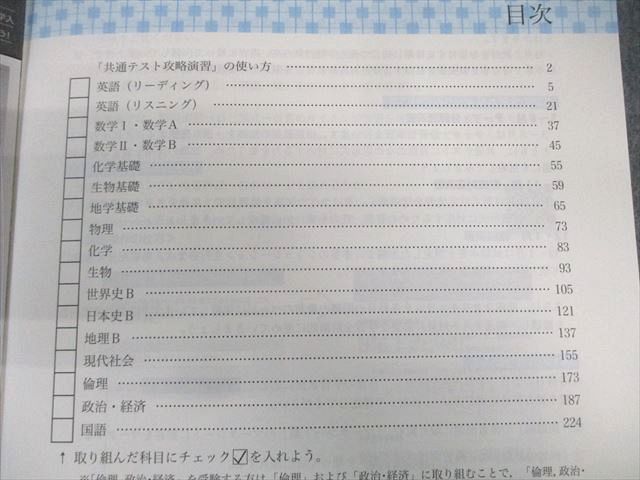 目次
「共通テスト攻略演習」の使い方 …… 2
英語（リーディング） …… 5
英語（リスニング） …… 21
数学Ⅰ・数学A …… 37
数学Ⅱ・数学B …… 45
化学基礎 …… 55
生物基礎 …… 59
地学基礎 …… 65
物理 …… 73
化学 …… 83
生物 …… 93
世界史B …… 105
日本史B …… 121
地理B …… 137
現代社会 …… 155
倫理 …… 173
政治・経済 …… 187
国語 …… 224
↑ 取り組んだ科目にチェック☑を入れよう。
※「倫理，政治・経済」を受験する方は「倫理」および「政治・経済」に取り組むことで，「倫理，政治・